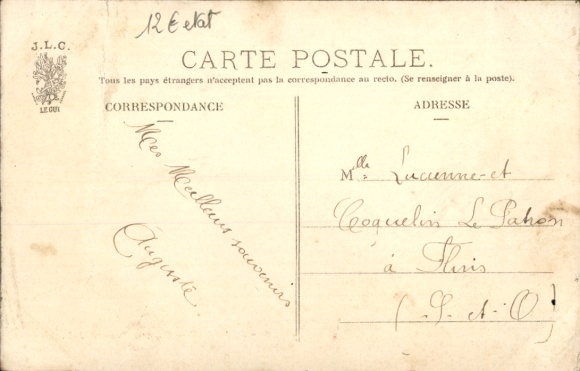 12 € etat
J.L.C.
LE GUI
CARTE POSTALE.
Tous les pays étrangers n'acceptent pas la correspondance au recto. (Se renseigner à la poste).
CORRESPONDANCE
Mes Meilleurs souvenirs
Auguste.
ADRESSE
Mlle Lucienne et
Coquelin Le Patron
à Flins
(S. et. O)